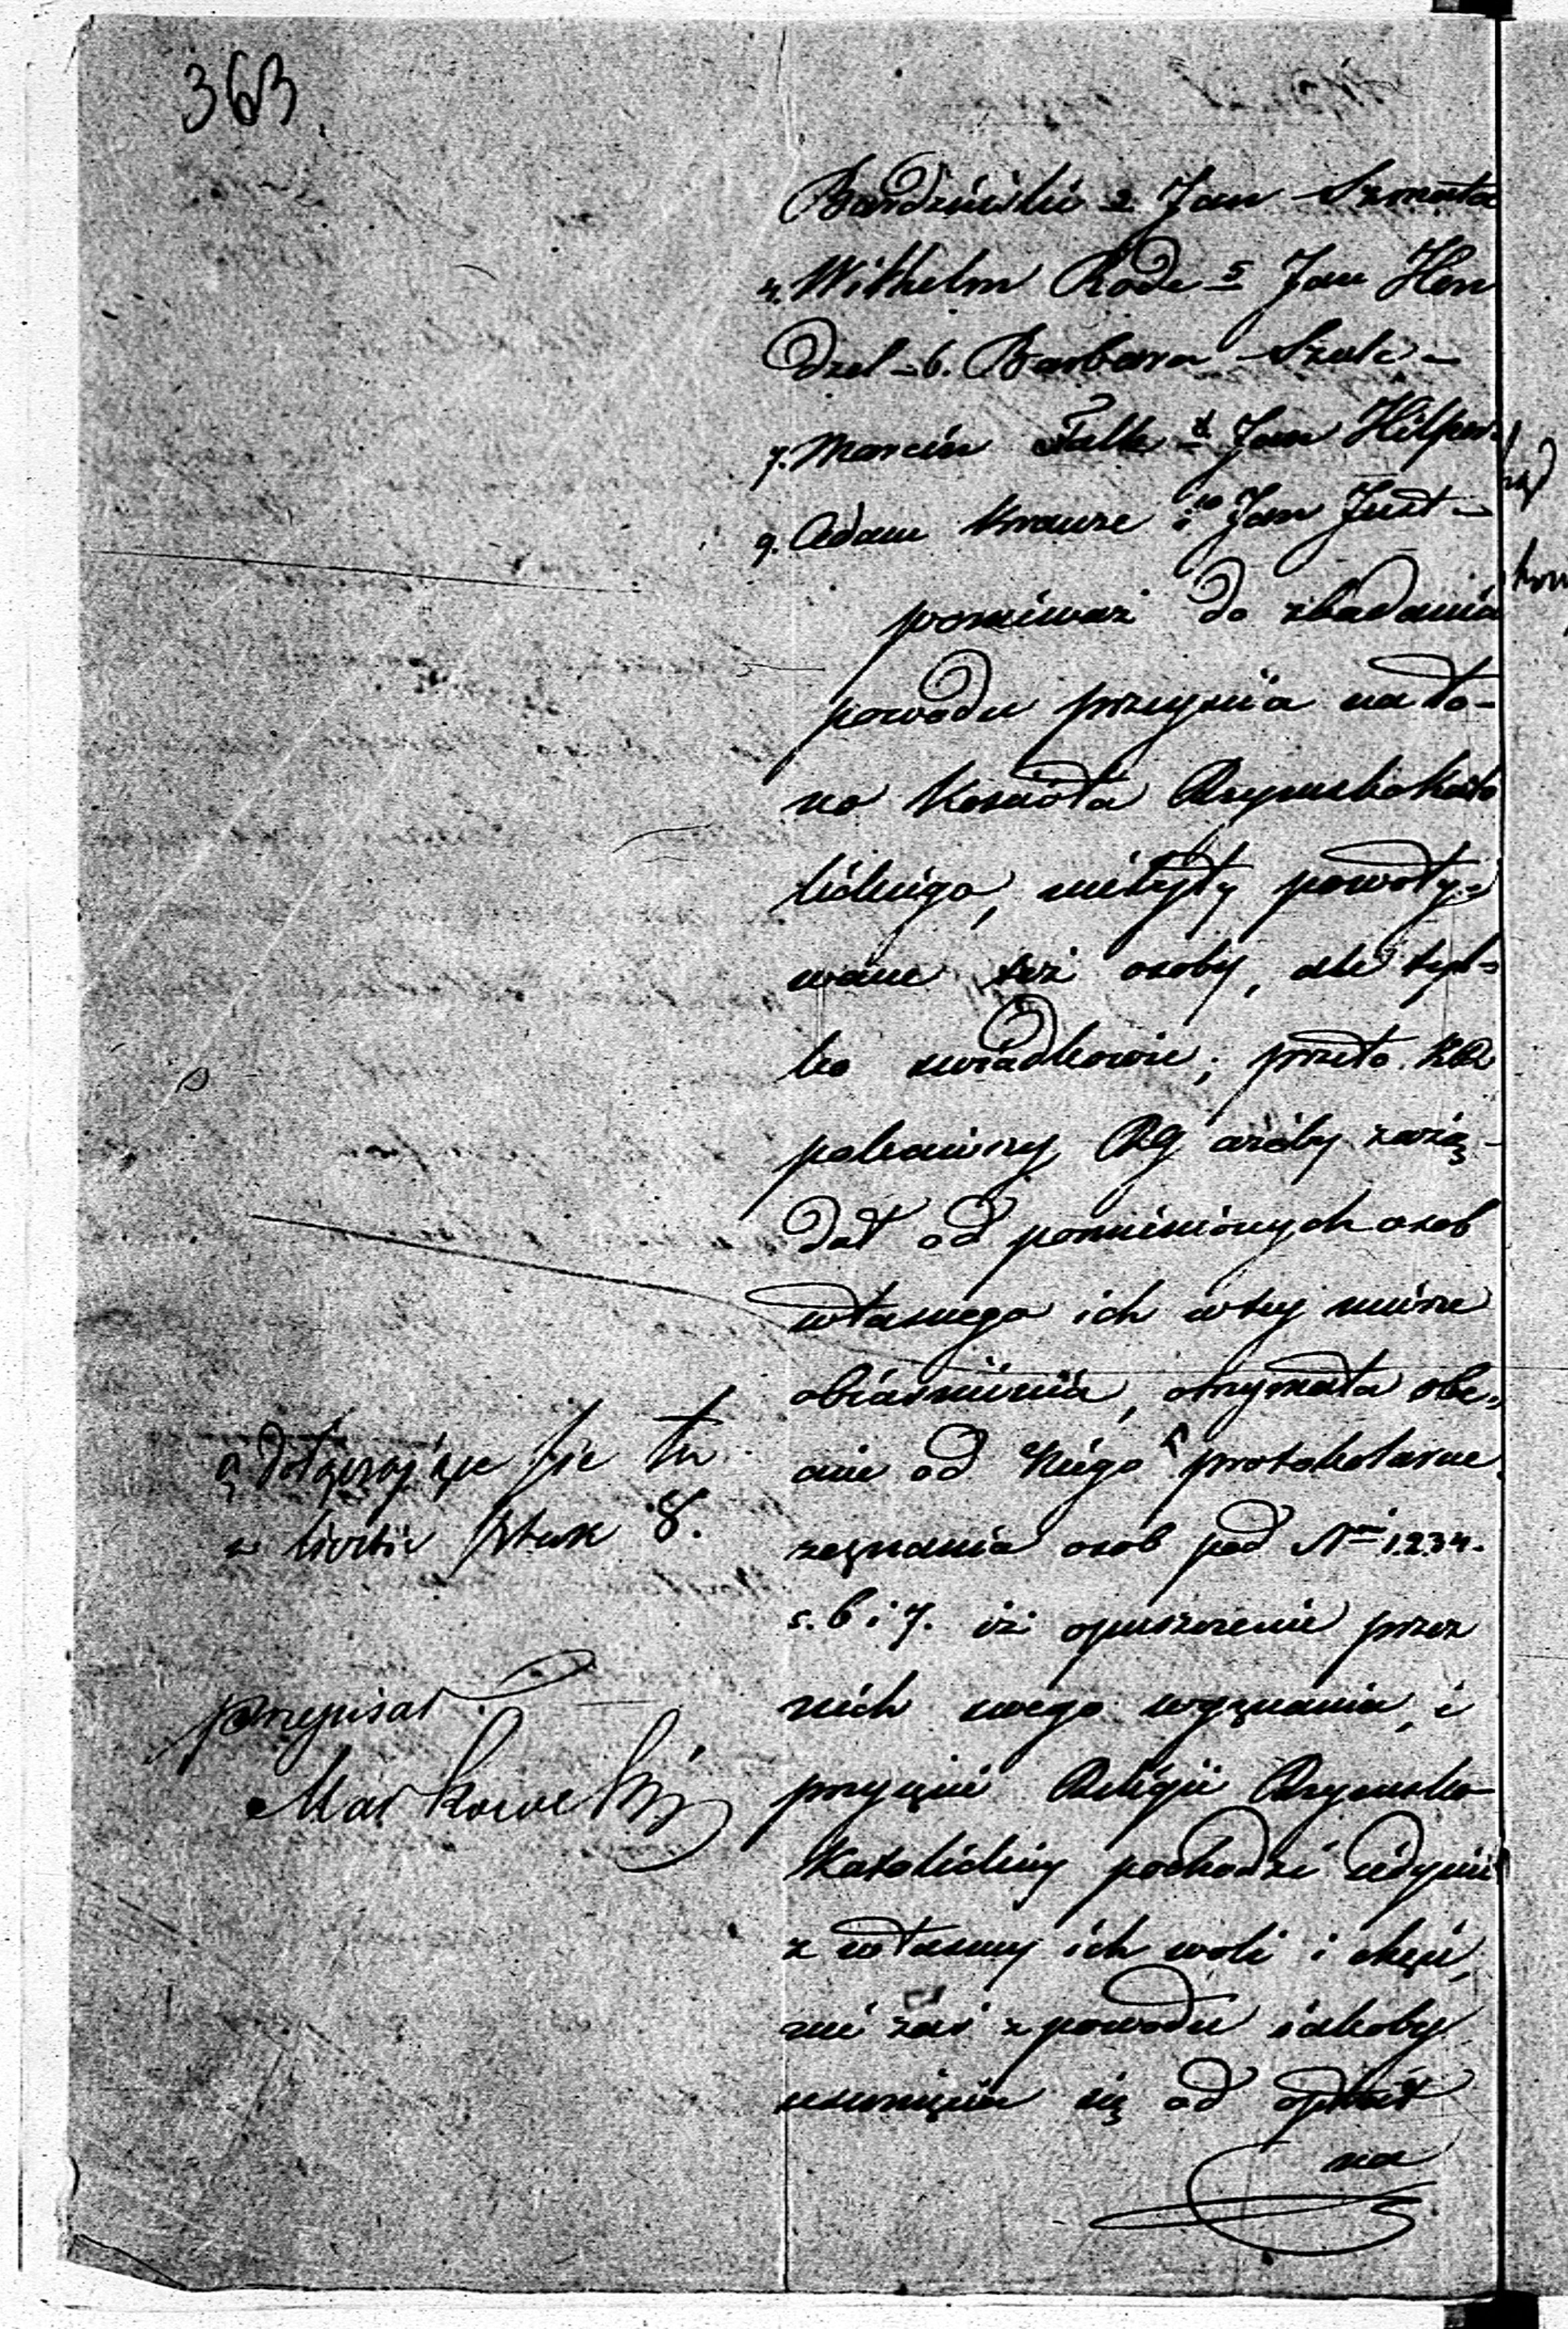 363.
Bardziński 2 Jan Szmata
4. Wilhelm Rode 5 Jan Hen
dzel – 6. Barbara Szulc –
7. Marcin Falk 8 Jan Hilper
9. Adam Krauze i 10 Jan Just –
ponieważ do zbadania
powodu przeyścia na ło-
no Kościoła Rzymsko Kato
lickiego, niebyły powoły-
wane też osoby, ale tyl-
ko świadkowie; przeto
poleciwszy RG ażeby zażą-
dał od pomienionych osob
własnego ich w tey mierze
obiaśnienia, otrzymała obe-
cnie od Niego protokolarne
zeznania osob pod Nrm 1.2.3.4.
5. 6 i 7. iż opuszczenie przez
nich swego wyznania, i
przyięcie Religii Rzymsko
Katolickiey pochodzi iedynie
z własney ich woli i chęci,
nie zaś z powodu iakoby
usunięcia się od opłat
na
ą dołączające się tu
w liczbie sztuk 8.
przypisał
Markowski